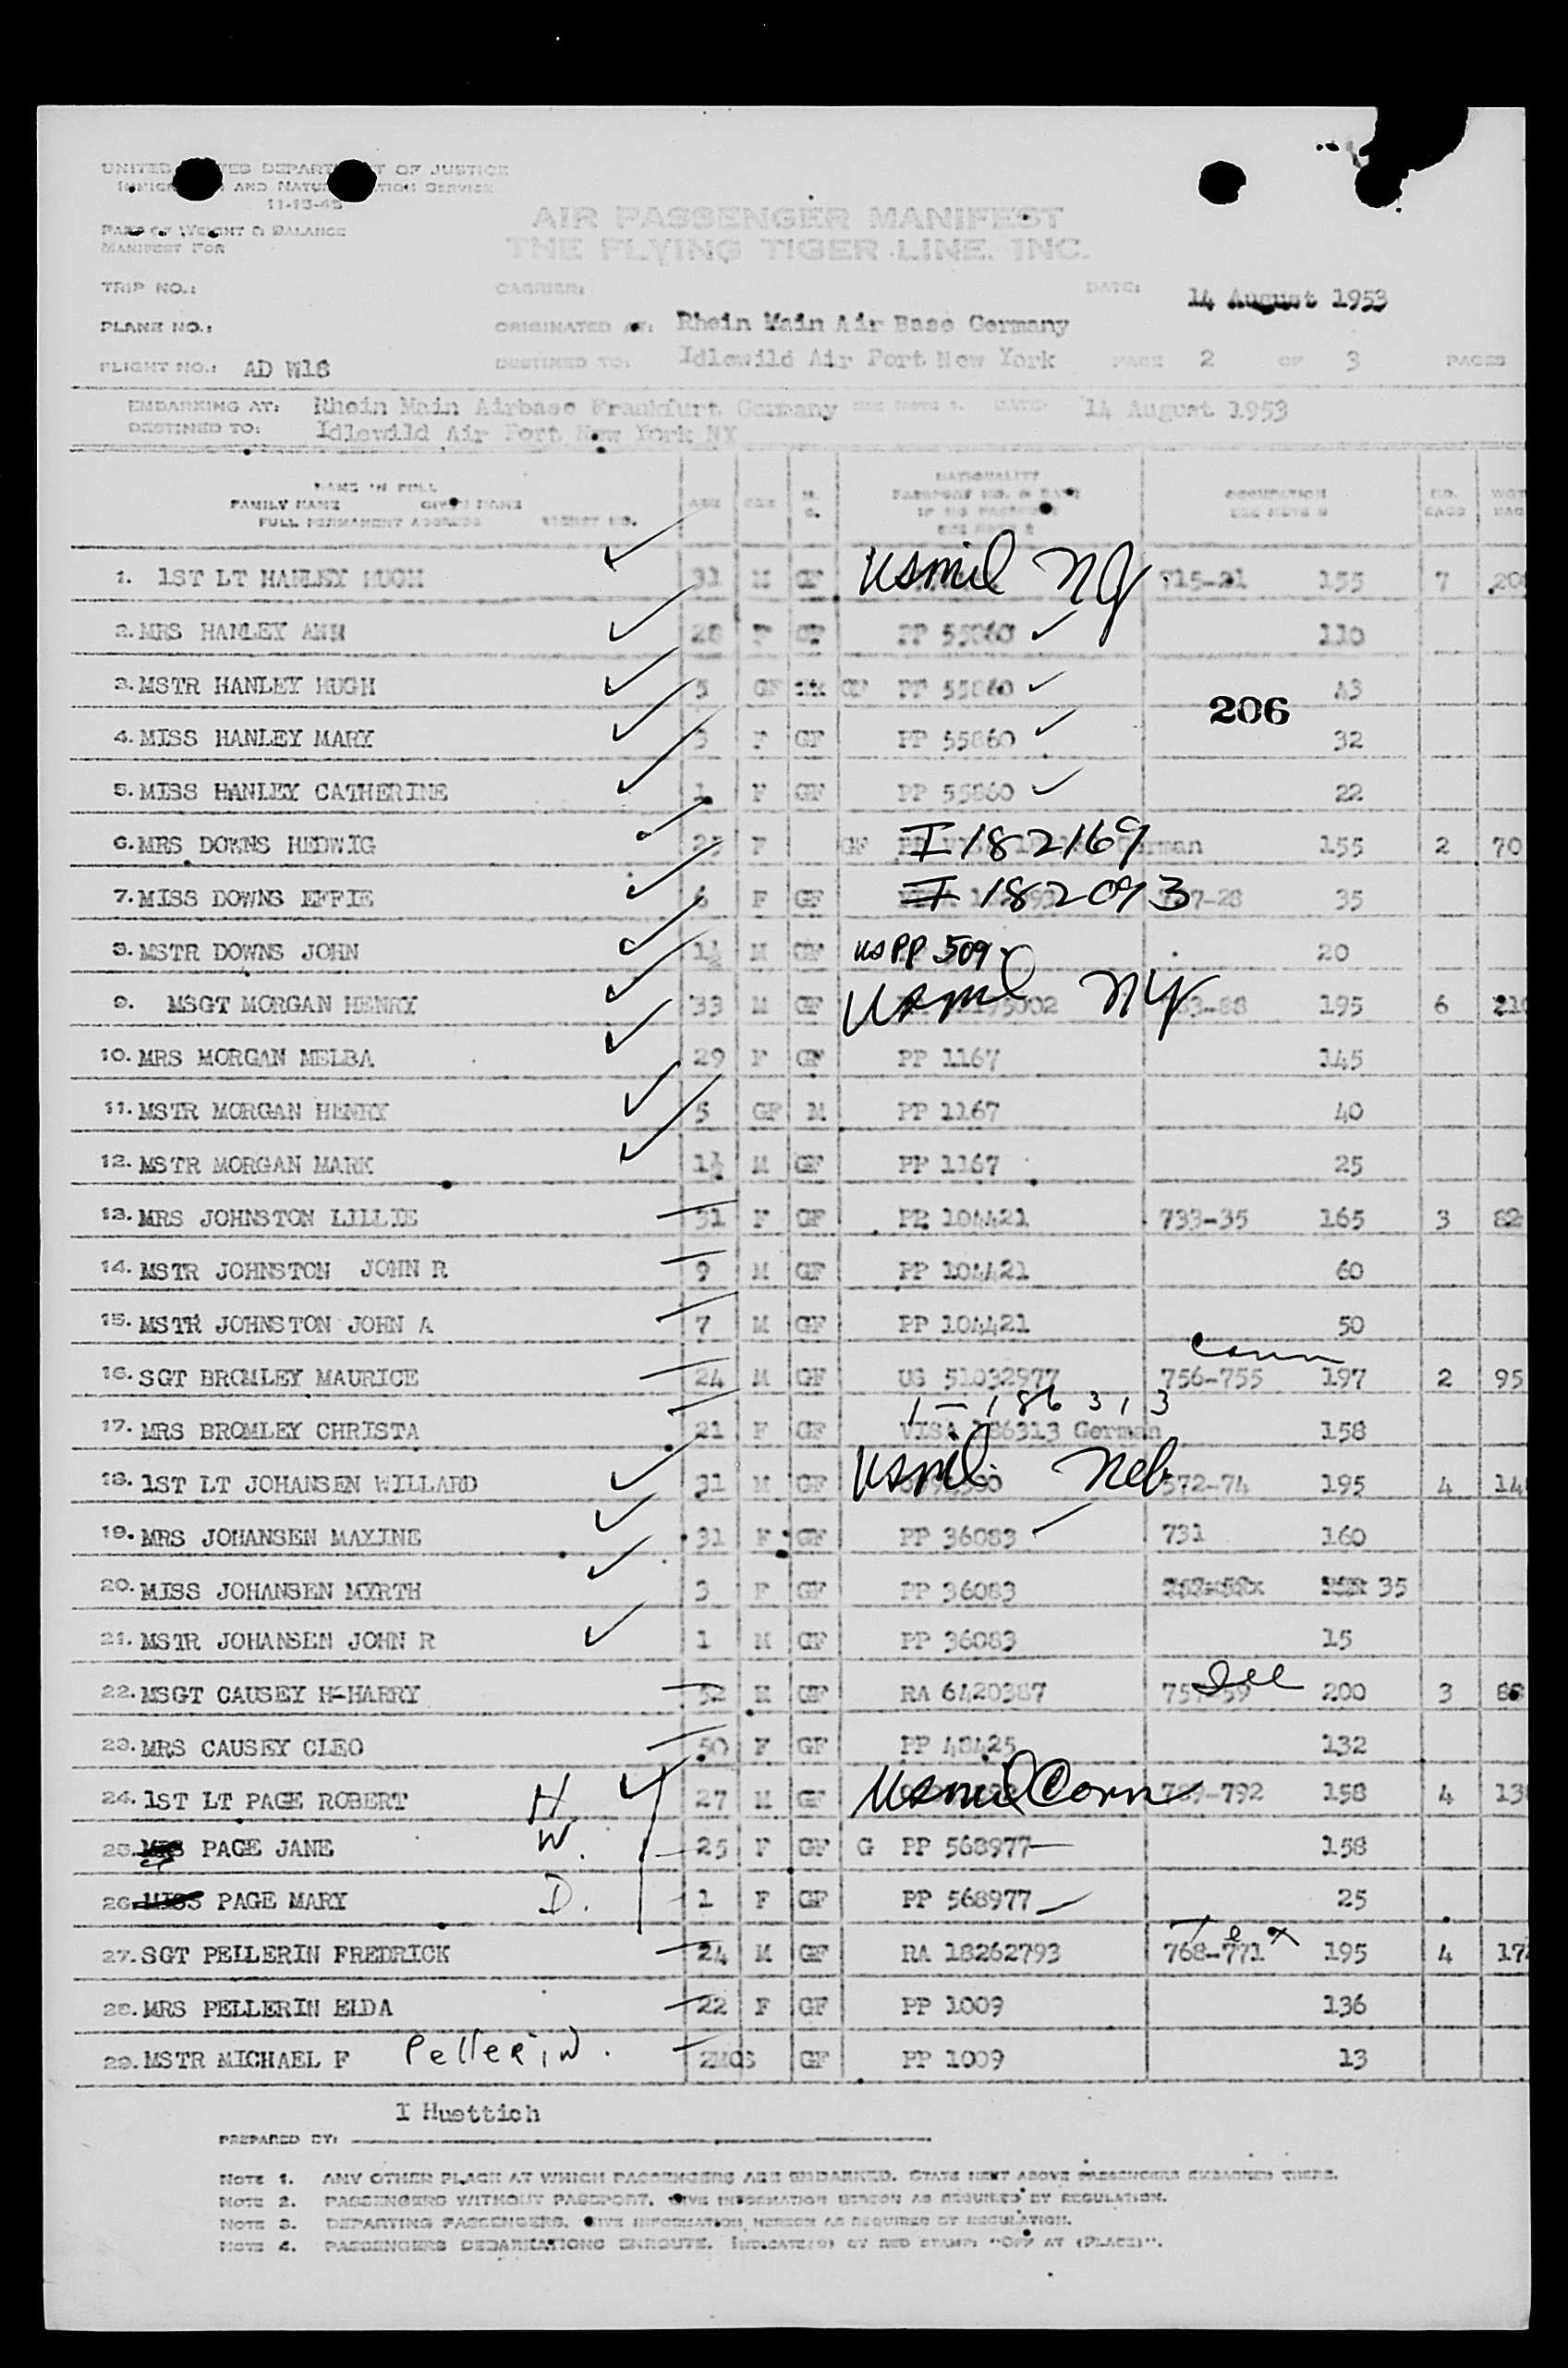 UNITED STATES DEPARTMENT OF JUSTICE
IMMIGRATION AND NATURALIZATION SERVICE
11-15-45
PART OF WEIGHT & BALANCE
MANIFEST FOR
AIR PASSENGER MANIFEST
THE FLYING TIGER LINE, INC.
TRIP NO.: CARRIER: DATE: 14 August 1953
PLANE NO.: ORIGINATED AT: Rhein Main Air Base Germany
FLIGHT NO.: AD W18 DESTINED TO: Idlewild Air Port New York PAGE 2 OF 3 PAGES
EMBARKING AT: Rhein Main Airbase Frankfurt Germany SEE NOTE 1. DATE: 14 August 1953
DESTINED TO: Idlewild Air Port New York NY
NAME IN FULL
FAMILY NAME GIVEN NAME
FULL PERMANENT ADDRESS TICKET NO.
AGE SEX
NATIONALITY
PASSPORT NO. & DATE
IF NO PASSPORT
SEE NOTE 2
OCCUPATION
NO. BAGS
1. 1ST LT HANLEY HUGH 31 M GF usmil NJ 715-21 155 7
2. MRS HANLEY ANN 28 F GF PP 55860 110
3. MSTR HANLEY HUGH 5 GF GF PP 55860 43
206
4. MISS HANLEY MARY 3 F GF PP 55860 32
5. MISS HANLEY CATHERINE 1 F GF PP 55860 22
6. MRS DOWNS HEDWIG 25 F GF I 182169 German 155 2 70
7. MISS DOWNS EFFIE 6 F GF I 182093 727-28 35
8. MSTR DOWNS JOHN 1½ M GF us PP 509 20
9. MSGT MORGAN HENRY 33 M GF usmil NY 83-88 195 6 210
10. MRS MORGAN MELBA 29 F GF PP 1167 145
11. MSTR MORGAN HENRY 5 GF M PP 1167 40
12. MSTR MORGAN MARK 1½ M GF PP 1167 25
13. MRS JOHNSTON LILLIE 31 F GF PP 104421 733-35 165 3 82
14. MSTR JOHNSTON JOHN R 9 M GF PP 104421 60
15. MSTR JOHNSTON JOHN A 7 M GF PP 104421 50
Conn
16. SGT BROMLEY MAURICE 24 M GF US 51032977 756-755 197 2 95
1-186313
17. MRS BROMLEY CHRISTA 21 F GF VISA 186313 German 158
18. 1ST LT JOHANSEN WILLARD 31 M GF usmil Neb 572-74 195 4 14
19. MRS JOHANSEN MAXINE 31 F GF PP 36083 731 160
20. MISS JOHANSEN MYRTH 3 F GF PP 36083 35
21. MSTR JOHANSEN JOHN R 1 M GF PP 36083 15
22. MSGT CAUSEY H-HARRY 52 M GF RA 6420387 757-59 Ill 200 3 88
23. MRS CAUSEY CLEO 50 F GF PP 48425 132
24. 1ST LT PAGE ROBERT H 27 M GF usmil Conn 789-792 158 4 13
25. MRS PAGE JANE W. 25 F GF G PP 568977 158
26. MISS PAGE MARY D. 1 F GF PP 568977 25
Tex
27. SGT PELLERIN FREDRICK 24 M GF RA 18262793 768-771 195 4 17
28. MRS PELLERIN ELDA 22 F GF PP 1009 136
29. MSTR MICHAEL F Pellerin. 2MOS GF PP 1009 13
I Huettich
PREPARED BY:
NOTE 1. ANY OTHER PLACE AT WHICH PASSENGERS ARE EMBARKED. STATE NEXT ABOVE PASSENGERS EMBARKED THERE.
NOTE 2. PASSENGERS WITHOUT PASSPORT. GIVE INFORMATION HEREON AS REQUIRED BY REGULATION.
NOTE 3. DEPARTING PASSENGERS. GIVE INFORMATION HEREON AS REQUIRED BY REGULATION.
NOTE 4. PASSENGERS DEBARKATIONS ENROUTE. INDICATE(D) BY RED STAMP: "OFF AT (PLACE)".